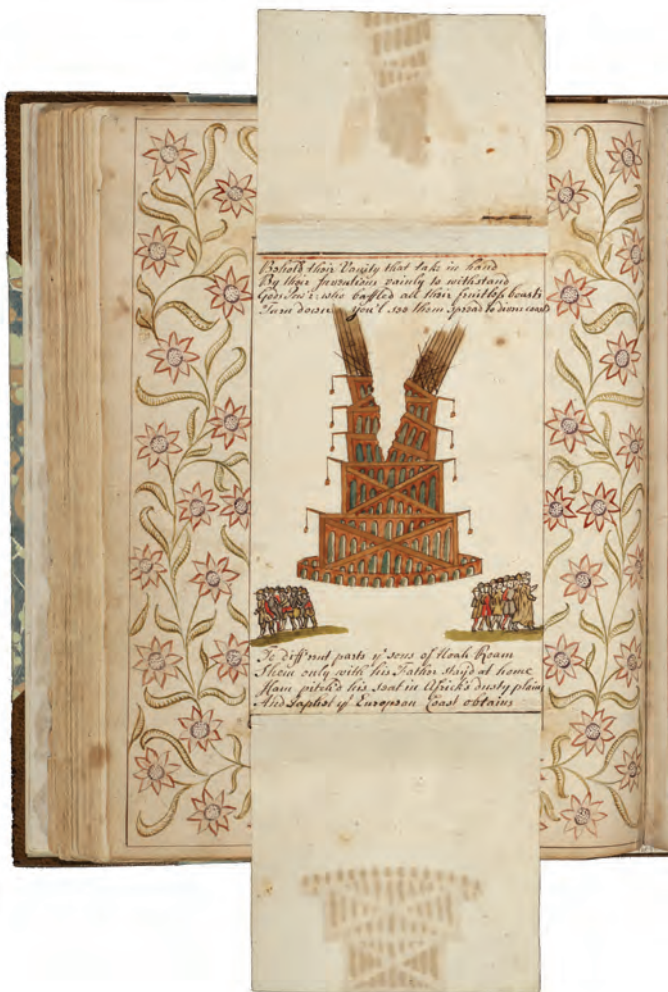 Behold their Vanity that take in hand
By their Inventions vainly to withstand
Gods Pow'r: who baffled all their fruitless boasts
Turn down & you'l see them spread to divers coasts
To diff'rent parts yͤ sons of Noah Roam
Shem only with his Father stay'd at home
Ham pitch'd his seat in Africk's dusty plain
And Japhet yͤ European Coast obtains